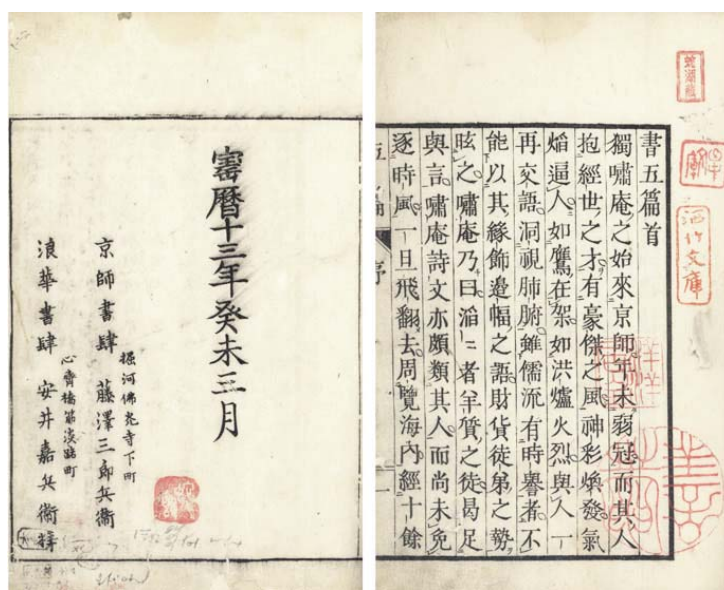 書五篇首
獨嘯庵之始來京師年未弱冠而其人
抱經世之才有豪傑之風神彩煥發氣
焔逼人如鷹在架如洪爐火烈與人一
再交語洞視肺腑雖儒流有時譽者不
能以其緣飾邊幅之語財貨徒弟之勢
眩之嘯庵乃曰滔〻者羊質之徒曷足
與言嘯庵詩文亦頗類其人而尚未免
逐時風一旦飛翻去周覽海內經十餘
序
一
酒竹文庫
寶曆十三年癸未三月
堀河佛光寺下町
京師書肆 藤澤三郎兵衞
心齋橋筋淡路町
浪華書肆 安井嘉兵衞梓